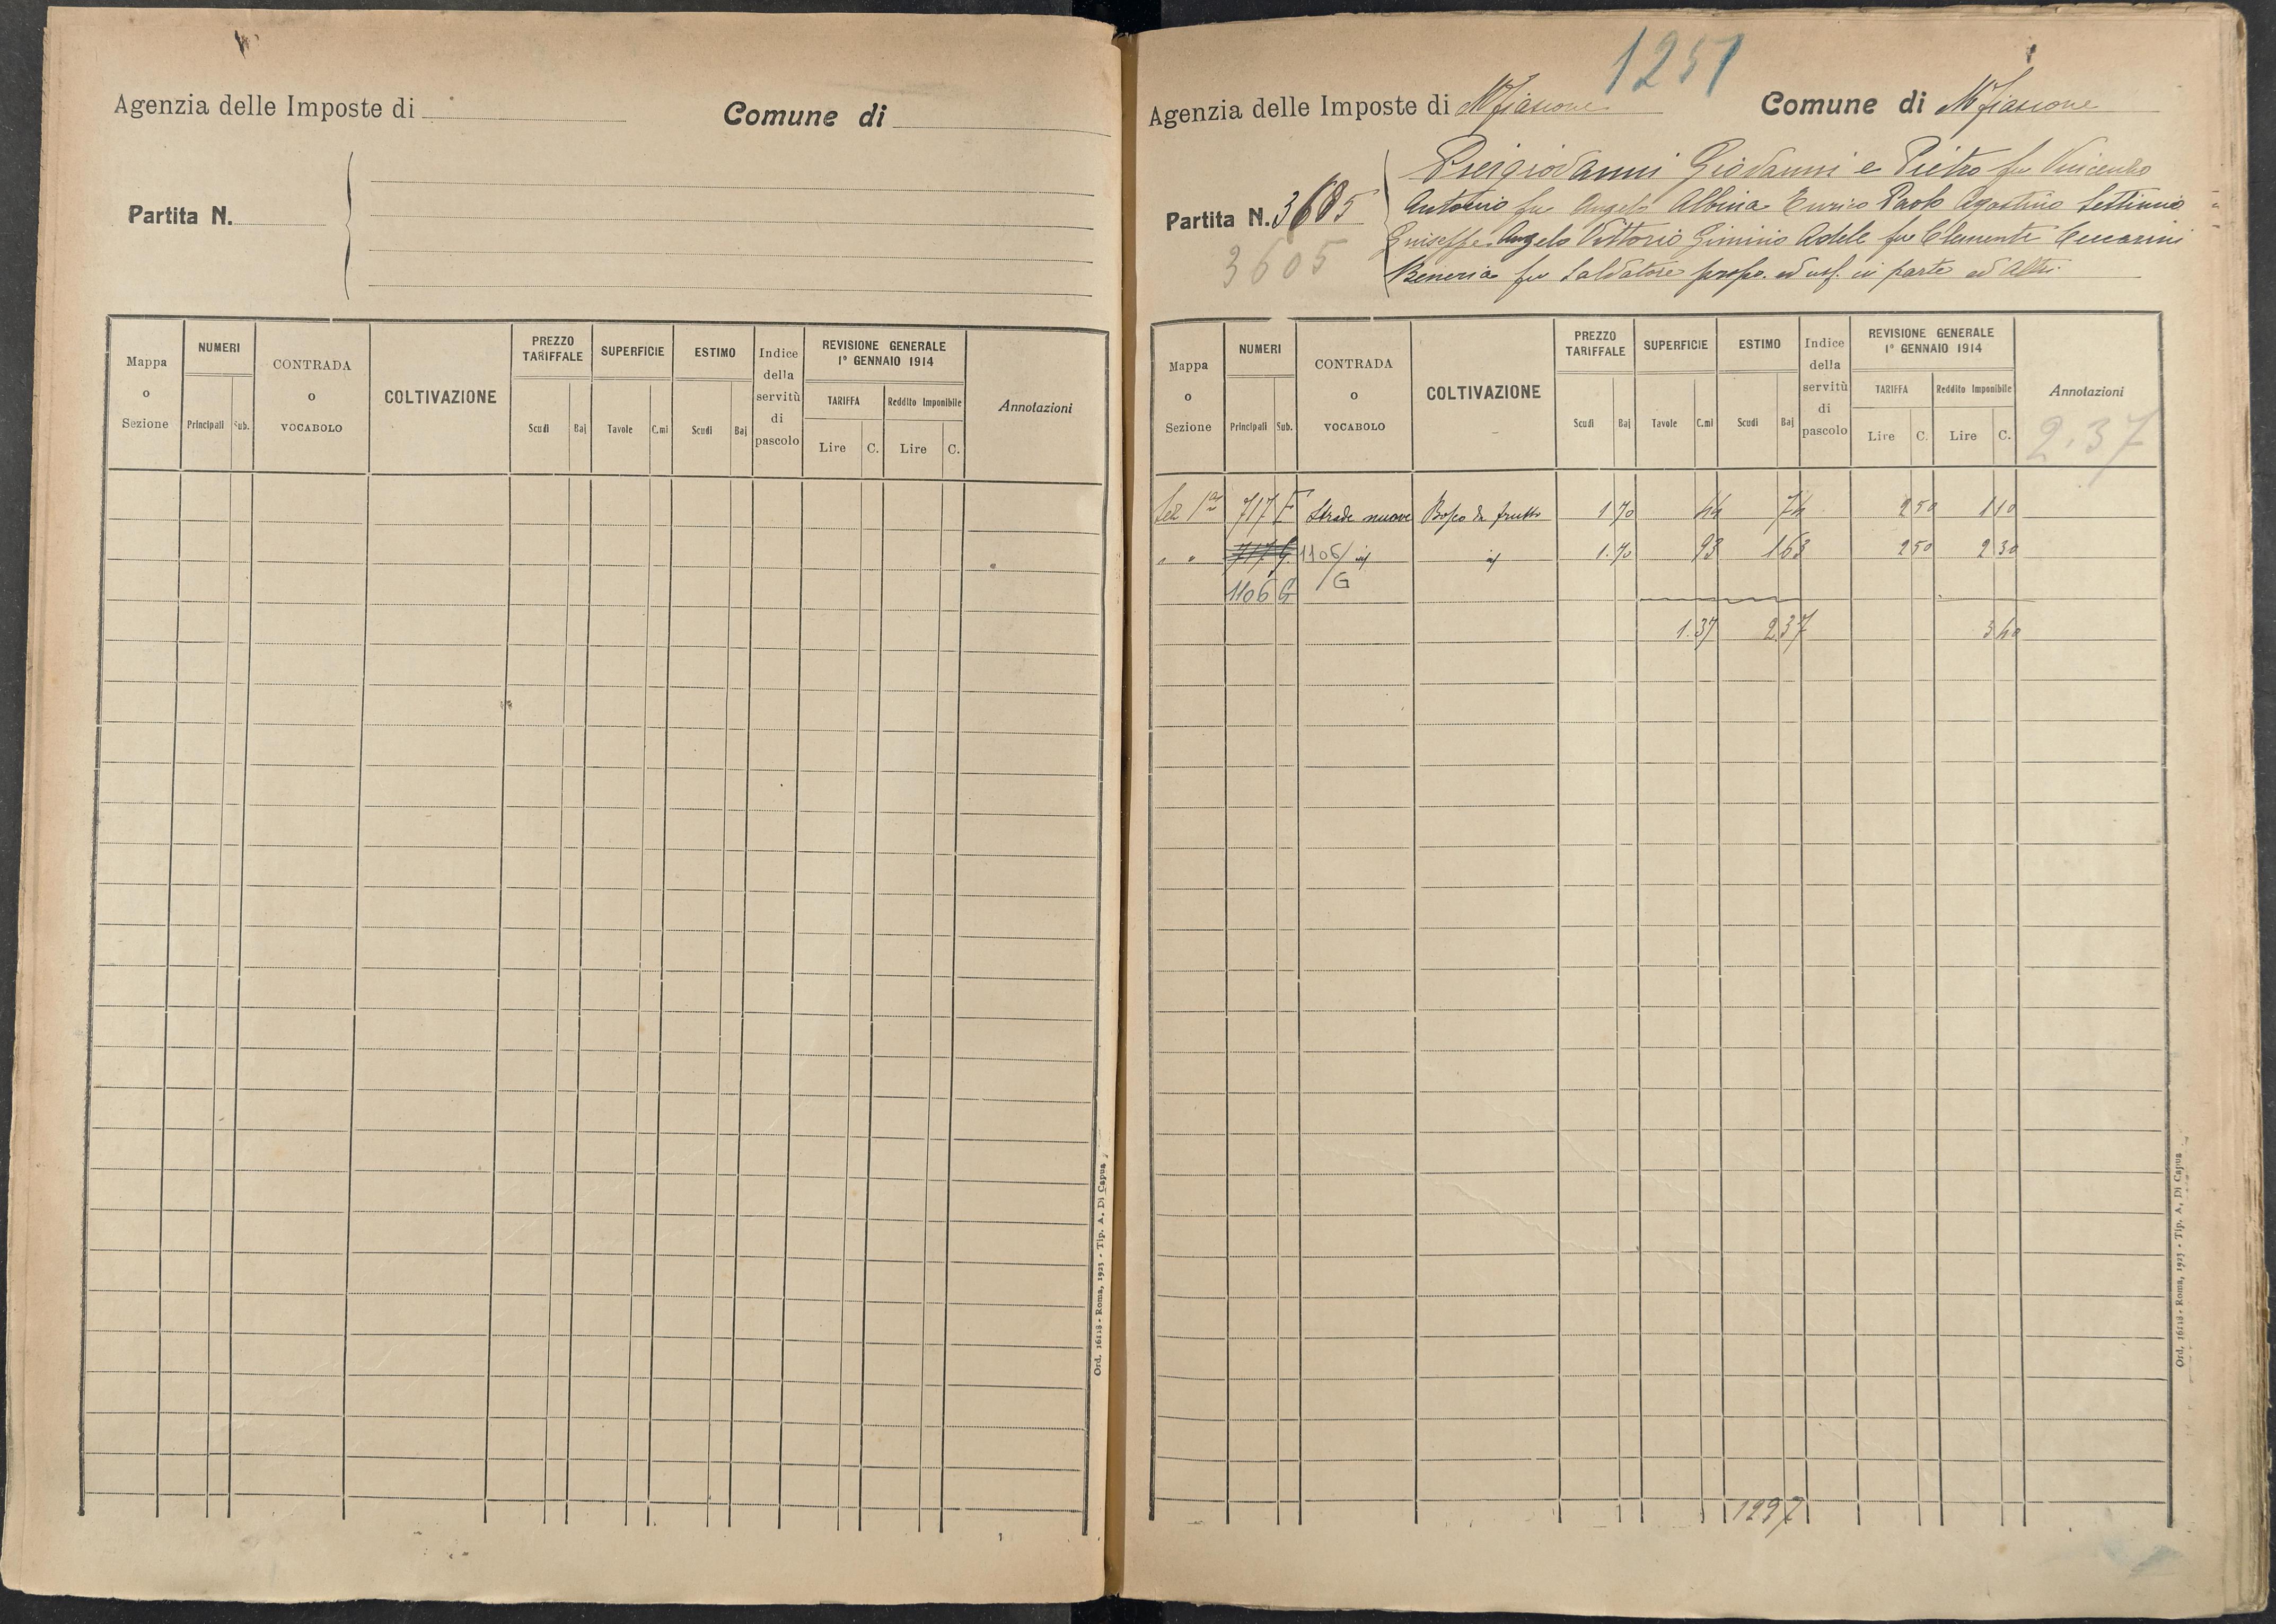 Agenzia delle Imposte di
Comune di
Partita N.
Mappa o Sezione
NUMERI
Principali Sub.
CONTRADA o VOCABOLO
COLTIVAZIONE
PREZZO TARIFFALE
Scudi Baj
SUPERFICIE
Tavole C.mi
ESTIMO
Scudi Baj
Indice della servitù di pascolo
REVISIONE GENERALE 1º GENNAIO 1914
TARIFFA Reddito Imponibile
Lire C. Lire C.
Annotazioni
Ord. 16118 - Roma, 1923 - Tip. A. Di Capua
1
1251
Agenzia delle Imposte di Mfiascone
Comune di Mfiascone
Partita N. 3685
3605
Piergiovanni Giovanni e Pietro fu Vincenzo
Antonio fu Angelo Albina Enrico Paolo Agostino Settimio
Giuseppe Angelo Vittorio Giminio Adele fu Clemente Ceccarini
fu Salvatore propr. ed usf. in parte ed Altri
Mappa o Sezione
NUMERI
Principali Sub.
CONTRADA o VOCABOLO
COLTIVAZIONE
PREZZO TARIFFALE
Scudi Baj
SUPERFICIE
Tavole C.mi
ESTIMO
Scudi Baj
Indice della servitù di pascolo
REVISIONE GENERALE 1º GENNAIO 1914
TARIFFA Reddito Imponibile
Lire C. Lire C.
Annotazioni
2.37
Sez 1a 717 F Strade nuove Bosco da frutto 1 70 44 74 2 50 1 10
" " 717 G 1106/ id id 1.70 93 1 63 2 50 2 30
1106 G /G
1.37 2.37 3 40
1297
Ord. 16118 - Roma, 1923 - Tip. A. Di Capua